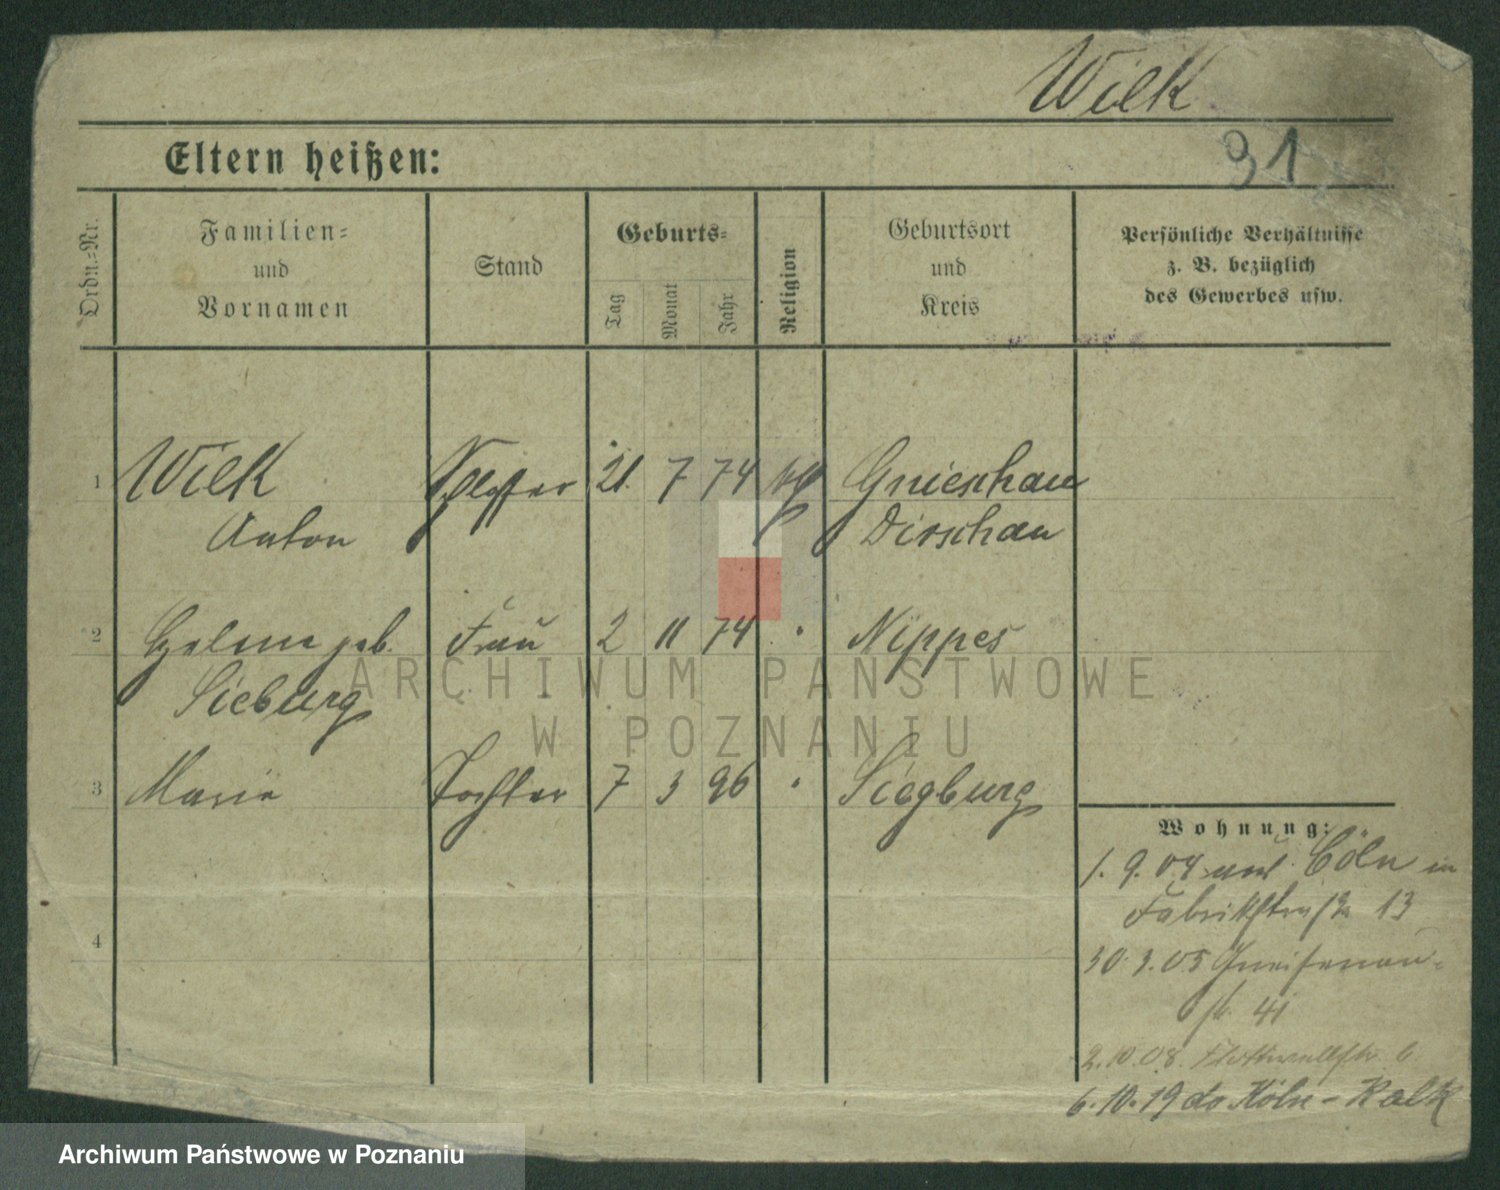 Wilk
31
Eltern heißen:
Ordn.-Nr.
Familien-
und
Vornamen
Stand
Geburts-
Tag
Monat
Jahr
Religion
Geburtsort
und
Kreis
Persönliche Verhältnisse
z. B. bezüglich
des Gewerbes usw.
1 Wilk Schlosser 21. 7 74 Gnieschau
Anton Dirschau
2 Helene geb. Frau 2 11 74 " Nippes
Sieburg
3 Marie Tochter 7 3 96 " Siegburg
4
Wohnung:
1. 9. 04 Cöln in
Fabrikstraße 13
30. 3. 05 Gneisenau-
str. 41
2. 10. 08. Flottwellstr. 6
6. 10. 19 do Köln-Kalk
ARCHIWUM PAŃSTWOWE
W POZNANIU
Archiwum Państwowe w Poznaniu